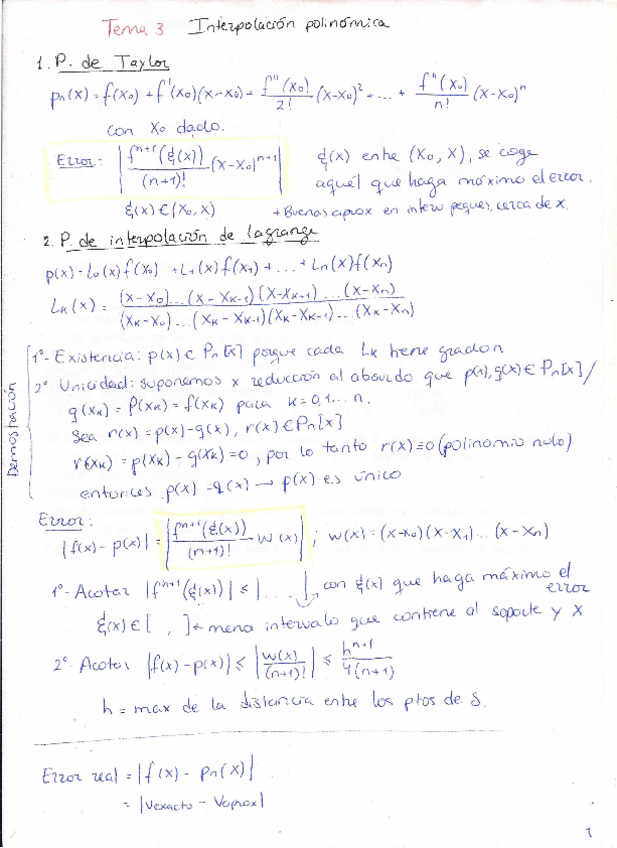 Tema 3 Interpolación polinómica
1. P. de Taylor
pn(x) = f(x0) + f'(x0)(x-x0) + f''(x0)/2! (x-x0)² + ... + fⁿ(x0)/n! (x-x0)ⁿ
con x0 dado.
Error: |fⁿ⁺¹(ξ(x))/(n+1)! (x-x0)ⁿ⁺¹| ξ(x) entre (x0, x), se coge
aquél que haga máximo el error.
ξ(x) ∈ (x0, x) + Buenas aprox en interv peques, cerca de x.
2. P. de interpolación de lagrange
p(x) = L0(x)f(x0) + L1(x)f(x1) + ... + Ln(x)f(xn)
LK(x) = (x-x0)...(x-xK-1)(x-xK+1)...(x-xn) / (xK-x0)...(xK-xK-1)(xK-xK+1)...(xK-xn)
Demostración
1º- Existencia: p(x) ∈ Pn[x] porque cada LK tiene grado n
2º Unicidad: suponemos x reducción al absurdo que p(x), q(x) ∈ Pn[x] /
q(xK) = P(xK) = f(xK) para K=0,1... n.
Sea r(x) = p(x)-q(x), r(x) ∈ Pn[x]
r(xK) = p(xK) - q(xK) = 0, por lo tanto r(x) ≡ 0 (polinomio nulo)
entonces p(x) = q(x) → p(x) es único
Error:
|f(x) - p(x)| = |fⁿ⁺¹(ξ(x))/(n+1)! w(x)| ; w(x) = (x-x0)(x-x1)... (x-xn)
1º- Acotar |fⁿ⁺¹(ξ(x))| ≤ |....|, con ξ(x) que haga máximo el error
ξ(x) ∈ [ , ] ← menor intervalo que contiene al soporte y x
2º- Acotar |f(x) - p(x)| ≤ |w(x)/(n+1)!| ≤ hⁿ⁺¹/4(n+1)
h = max de la distancia entre los ptos de S.
Error real = |f(x) - pn(x)|
= |Vexacto - Vaprox|
1